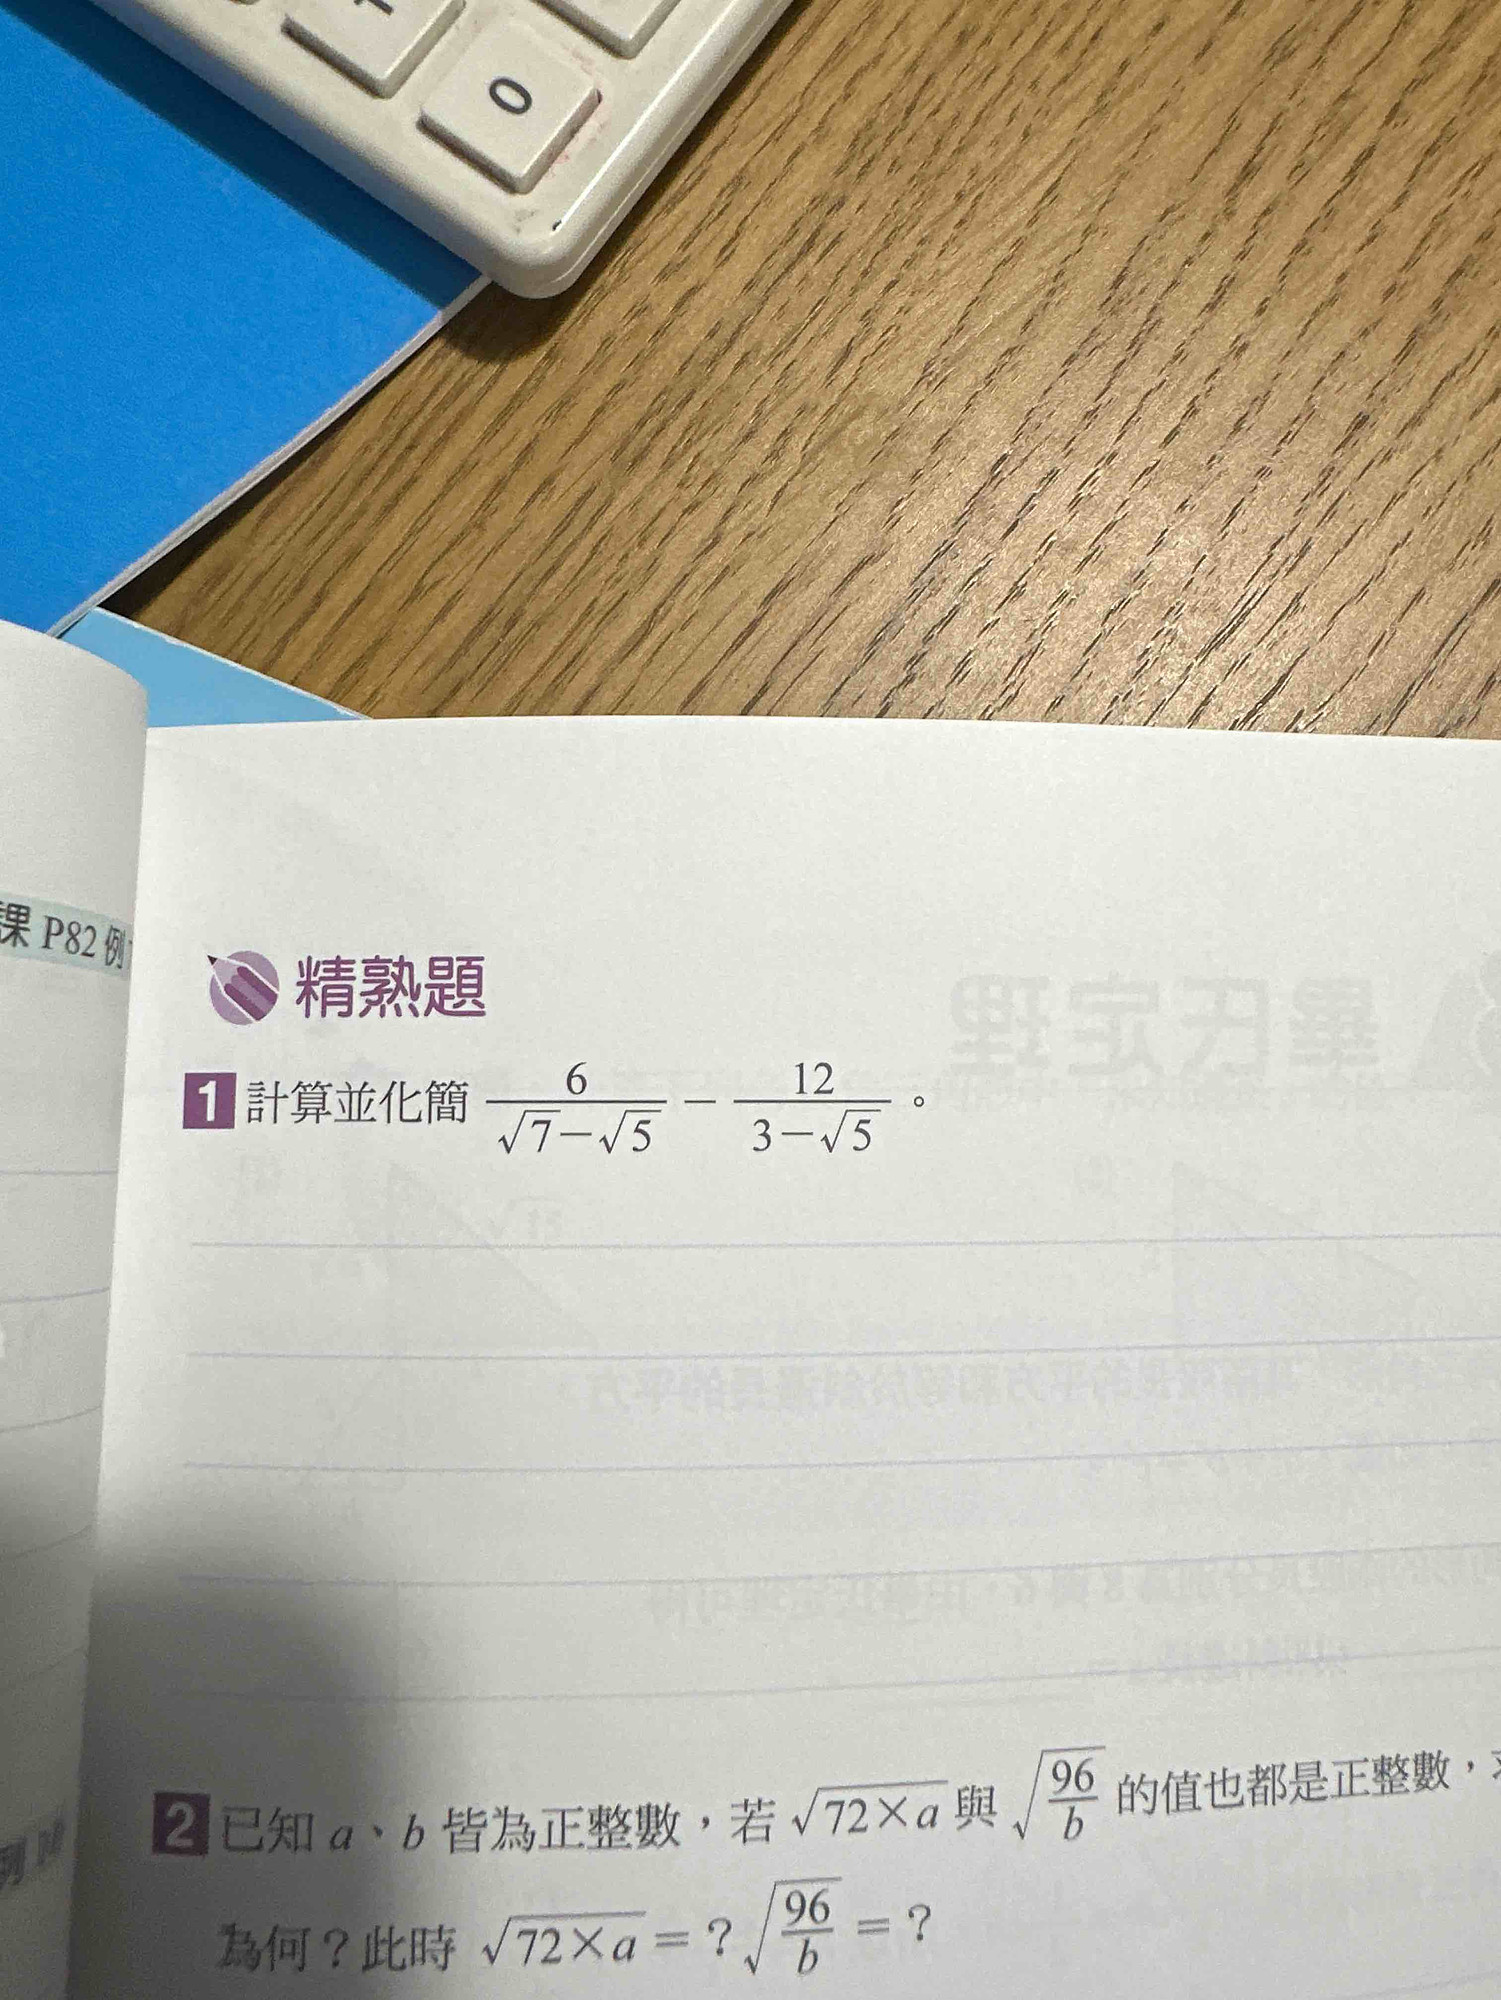 1
0
課 P82 例
精熟題
1 計算並化簡 6/(√7−√5) − 12/(3−√5)。
2 已知 a、b 皆為正整數,若 √(72×a) 與 √(96/b) 的值也都是正整數,
為何?此時 √(72×a) = ? √(96/b) = ?